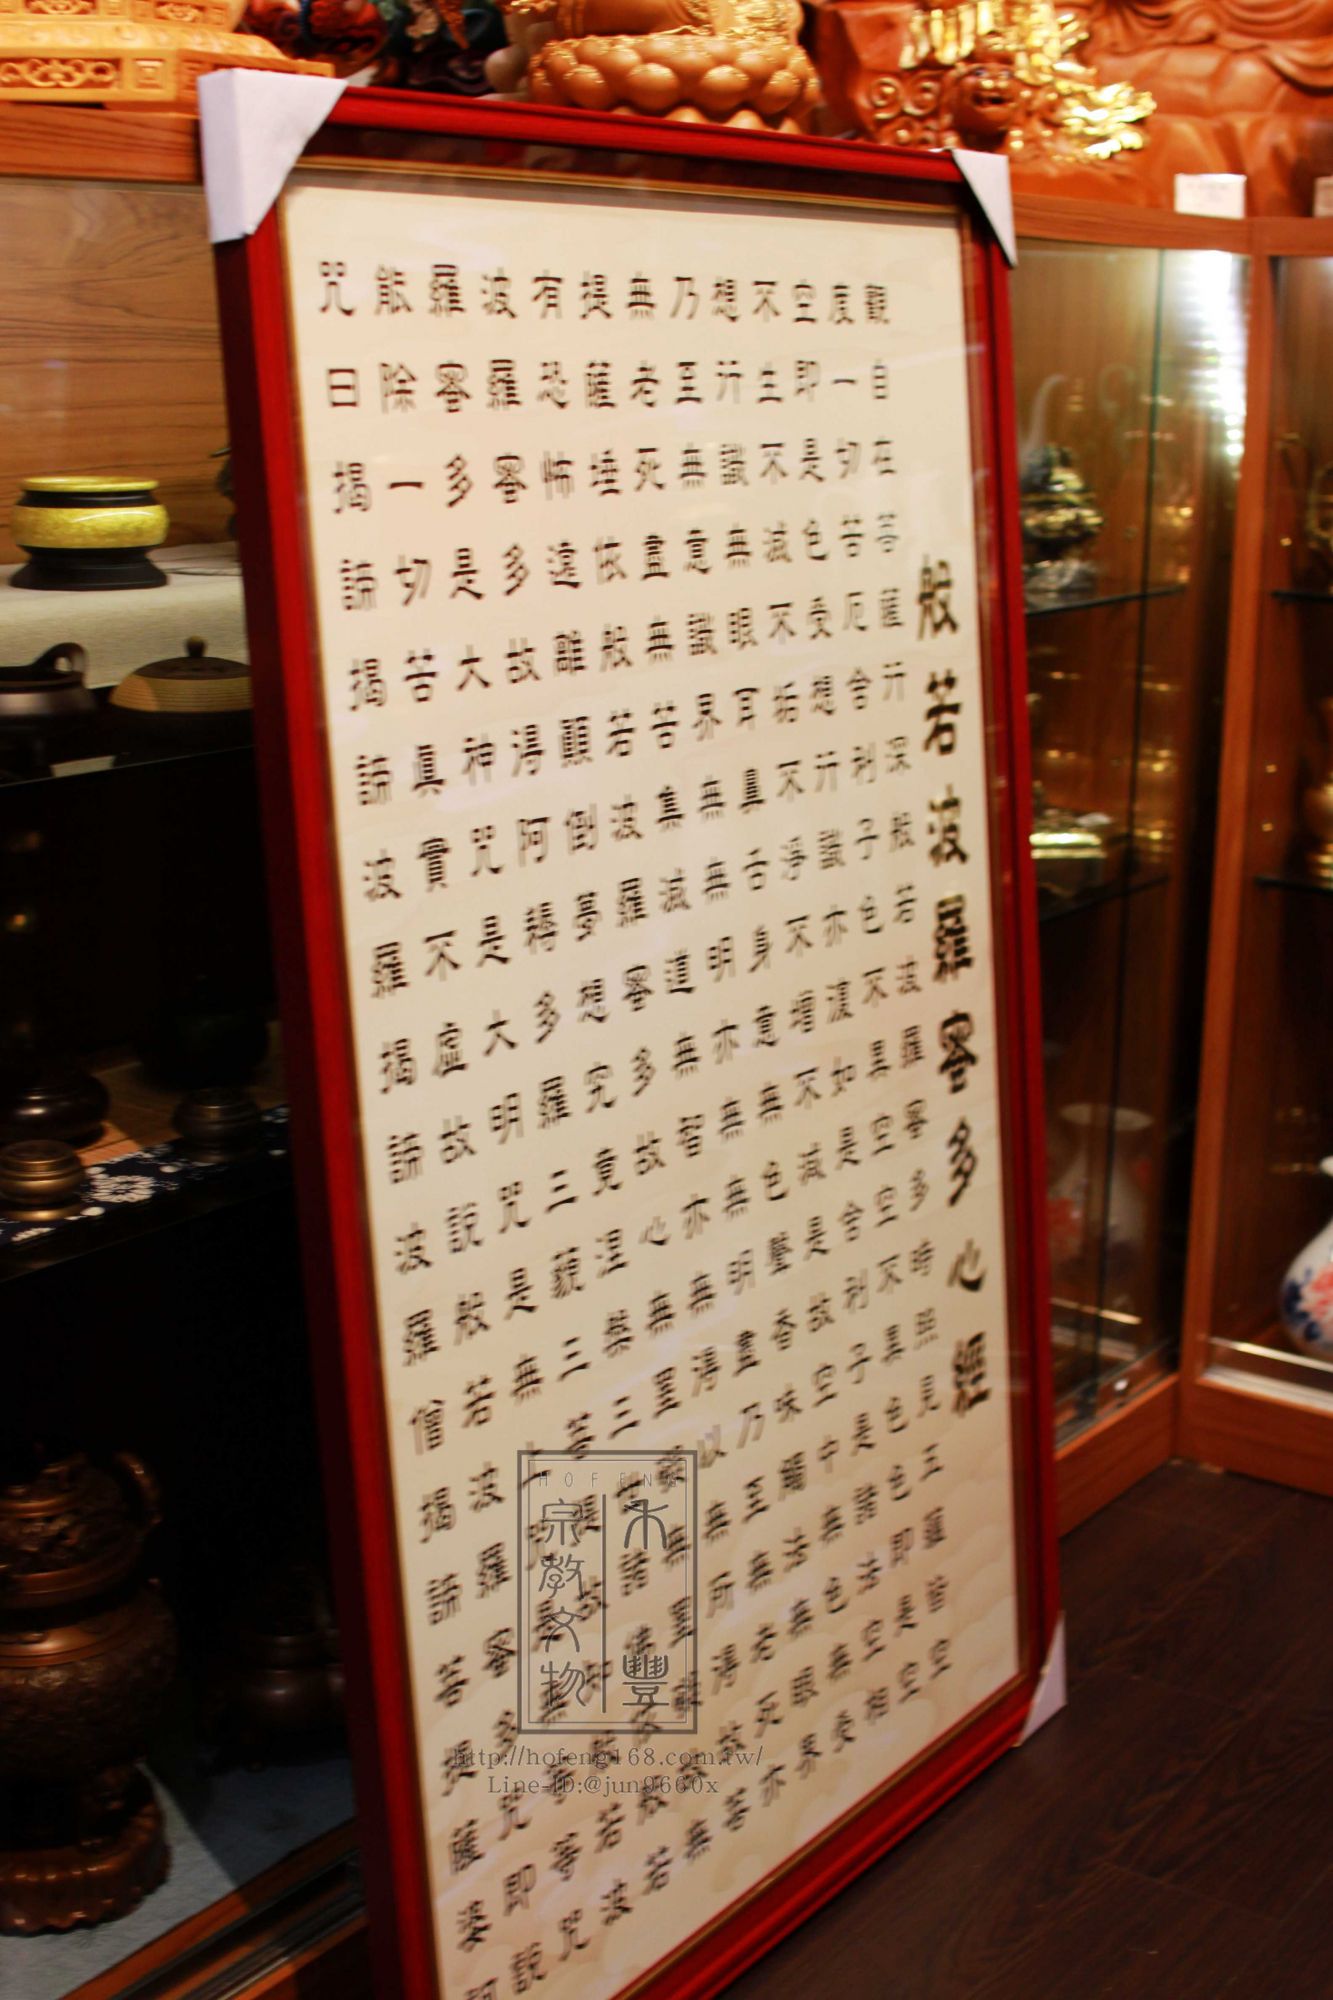 般若波羅密多心經
觀自在菩薩行深般若波羅密多時照見五蘊皆空
度一切苦厄舍利子色不異空空不異色色即是空
空即是色受想行識亦復如是舍利子是諸法空相
不生不滅不垢不淨不增不減是故空中無色無受
想行識無眼耳鼻舌身意無色聲香味觸法無眼界
乃至無意識界無無明亦無無明盡乃至無老死亦
無老死盡無苦集滅道無智亦無得以無所得故菩
提薩埵依般若波羅密多故心無罣礙無罣礙故無
有恐怖遠離顛倒夢想究竟涅槃三世諸佛依般若
波羅密多故得阿耨多羅三藐三菩提故知般若波
羅密多是大神咒是大明咒是無上咒是無等等咒
能除一切苦真實不虛故說般若波羅密多咒即說
咒曰揭諦揭諦波羅揭諦波羅僧揭諦菩提薩婆訶
HOFENG
禾豐
宗教文物
http://hofeng168.com.tw/
Line-ID:@jun9660x